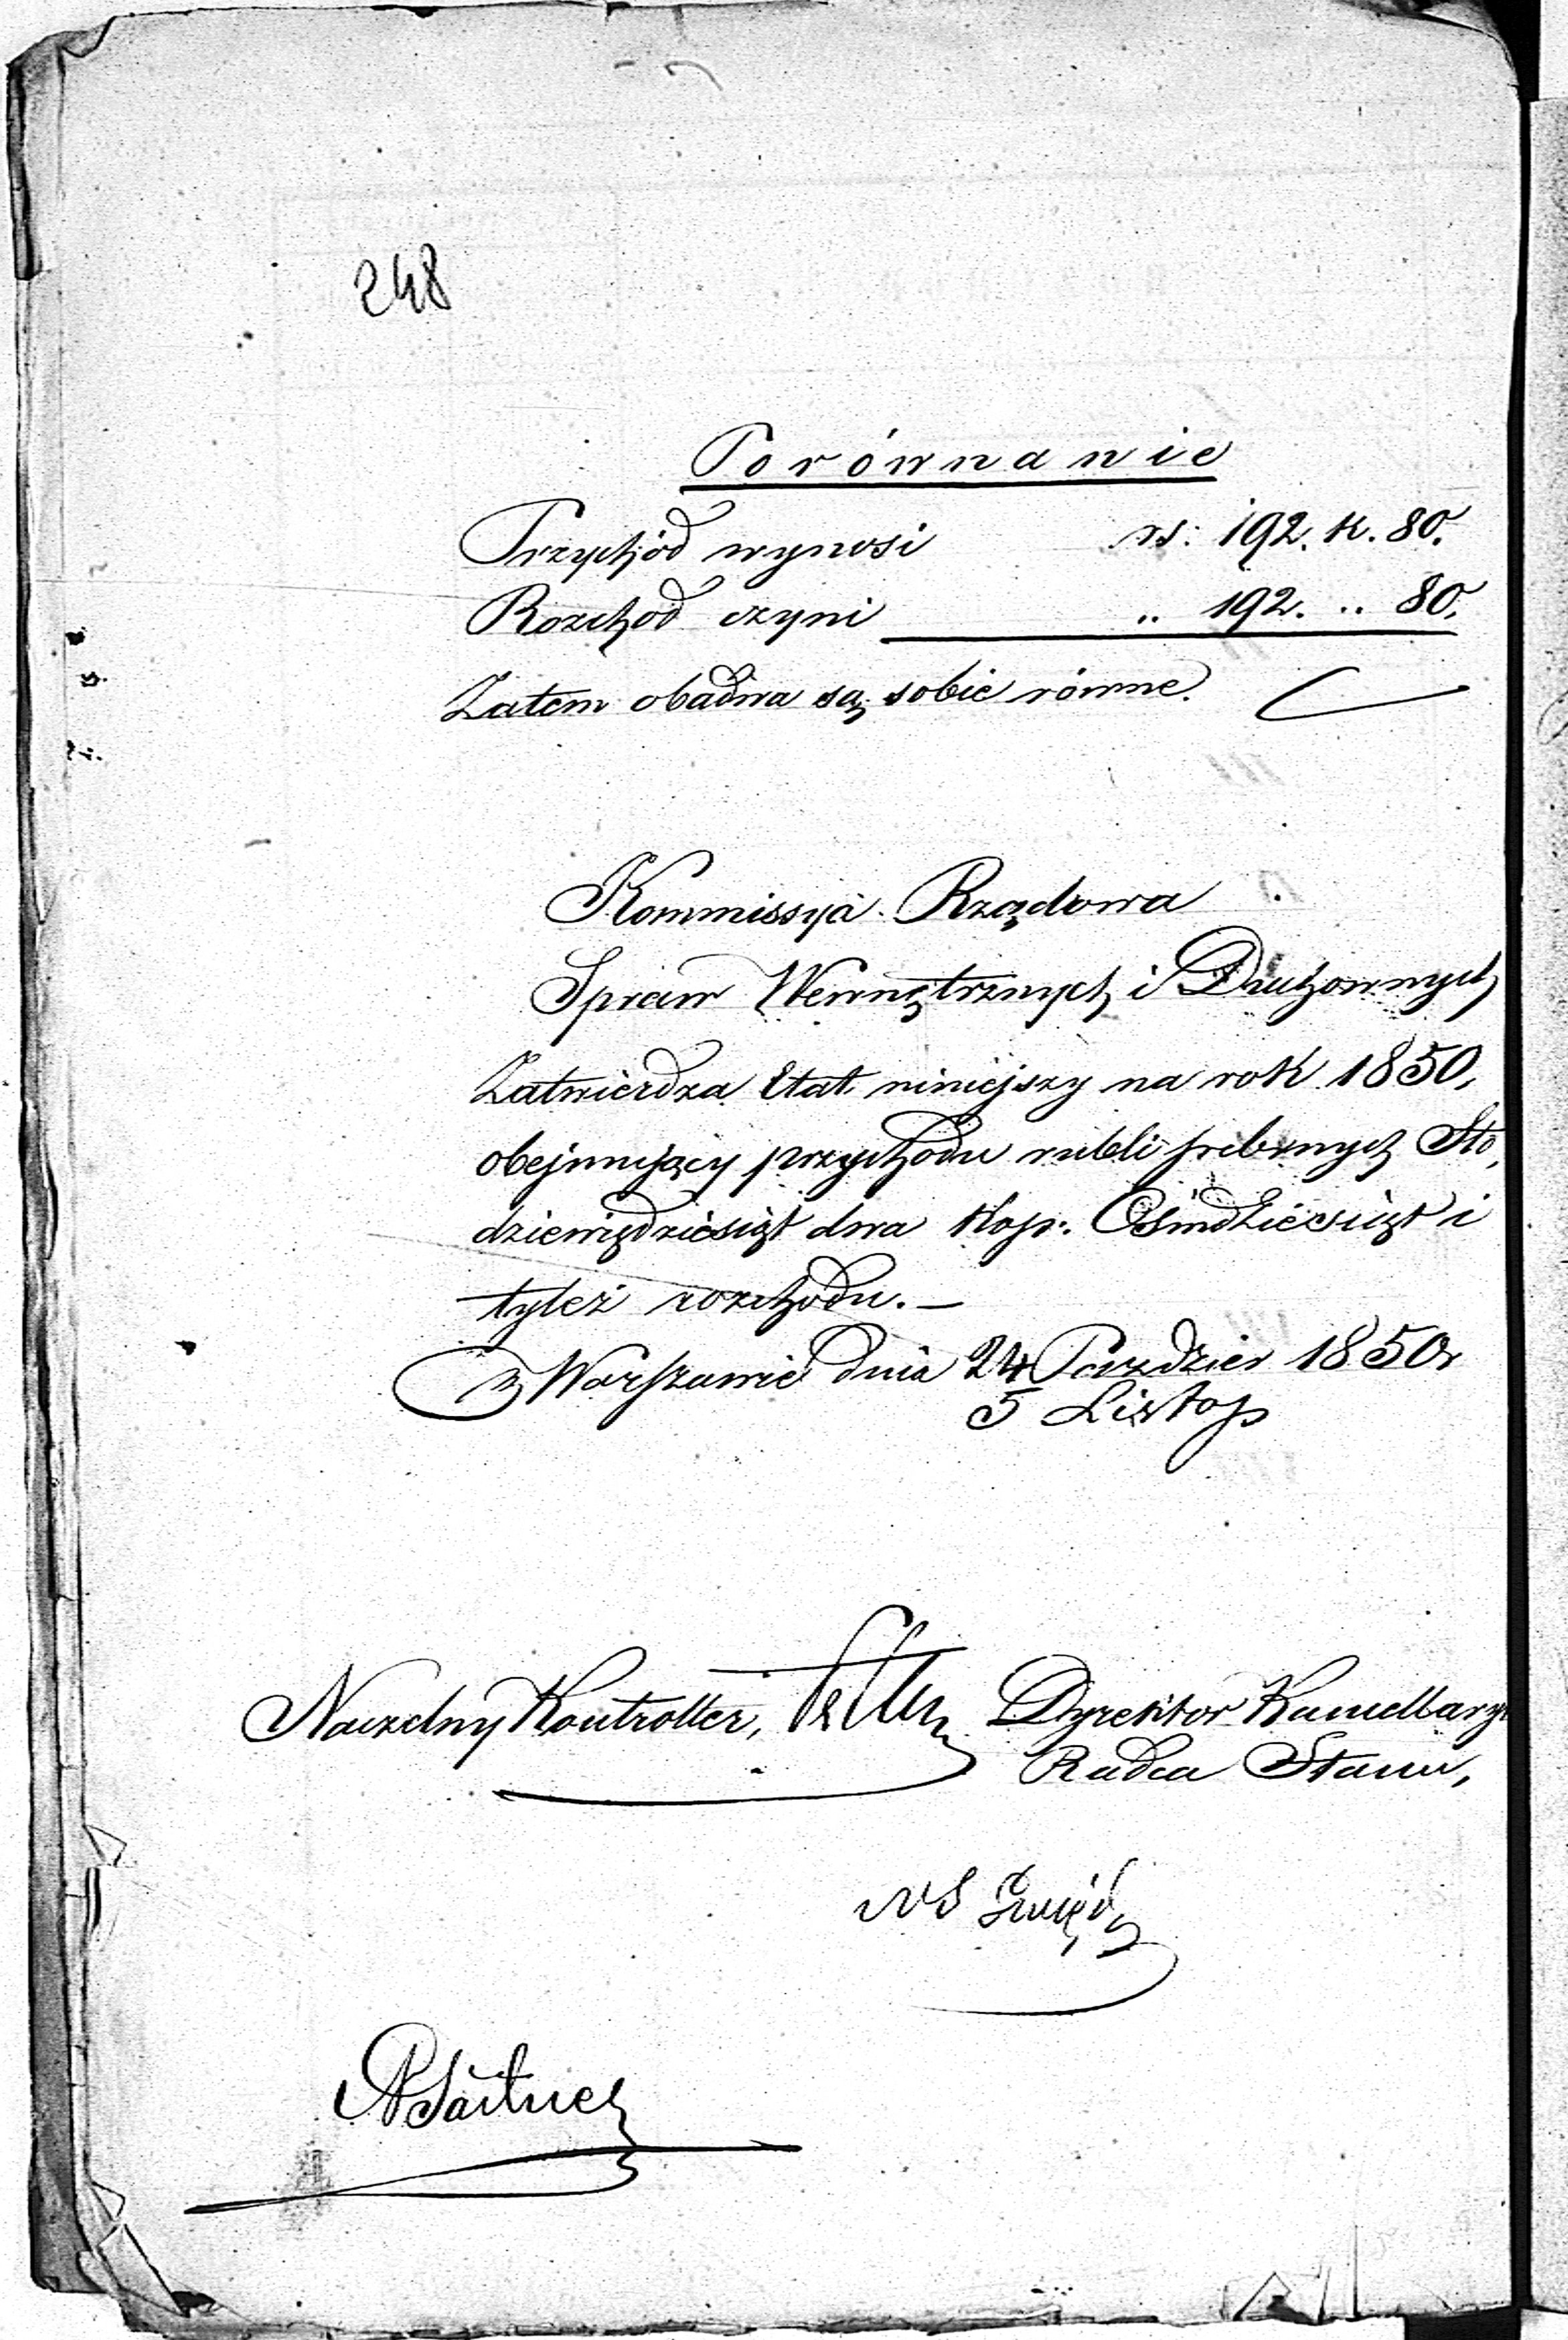 248
Porównanie
Przychód wynosi rs: 192. k. 80.
Rozchod czyni „ 192. „ 80.
Zatem obadwa są sobie równe.
Kommissya Rządowa
Spraw Wewnętrznych i Duchownych
Zatwierdza Etat niniejszy na rok 1850,
obejmujący przychodu rubli srebrnych Sto
dziewiędziesiąt dwa kop: Ośmdziesiąt i
tyleż rozchodu. —
w Warszawie dnia 24 Paździer 1850r
5 Listop
Naczelny Kontroller, Dyrektor Kancellaryi
Radca Stanu,